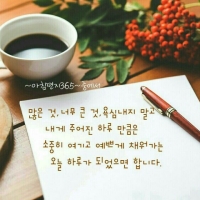 ~아침편지365~중에서
많은 것, 너무 큰 것, 욕심내지 말고
내게 주어진 하루 만큼은
소중히 여기고 예쁘게 채워가는
오늘 하루가 되었으면 합니다.